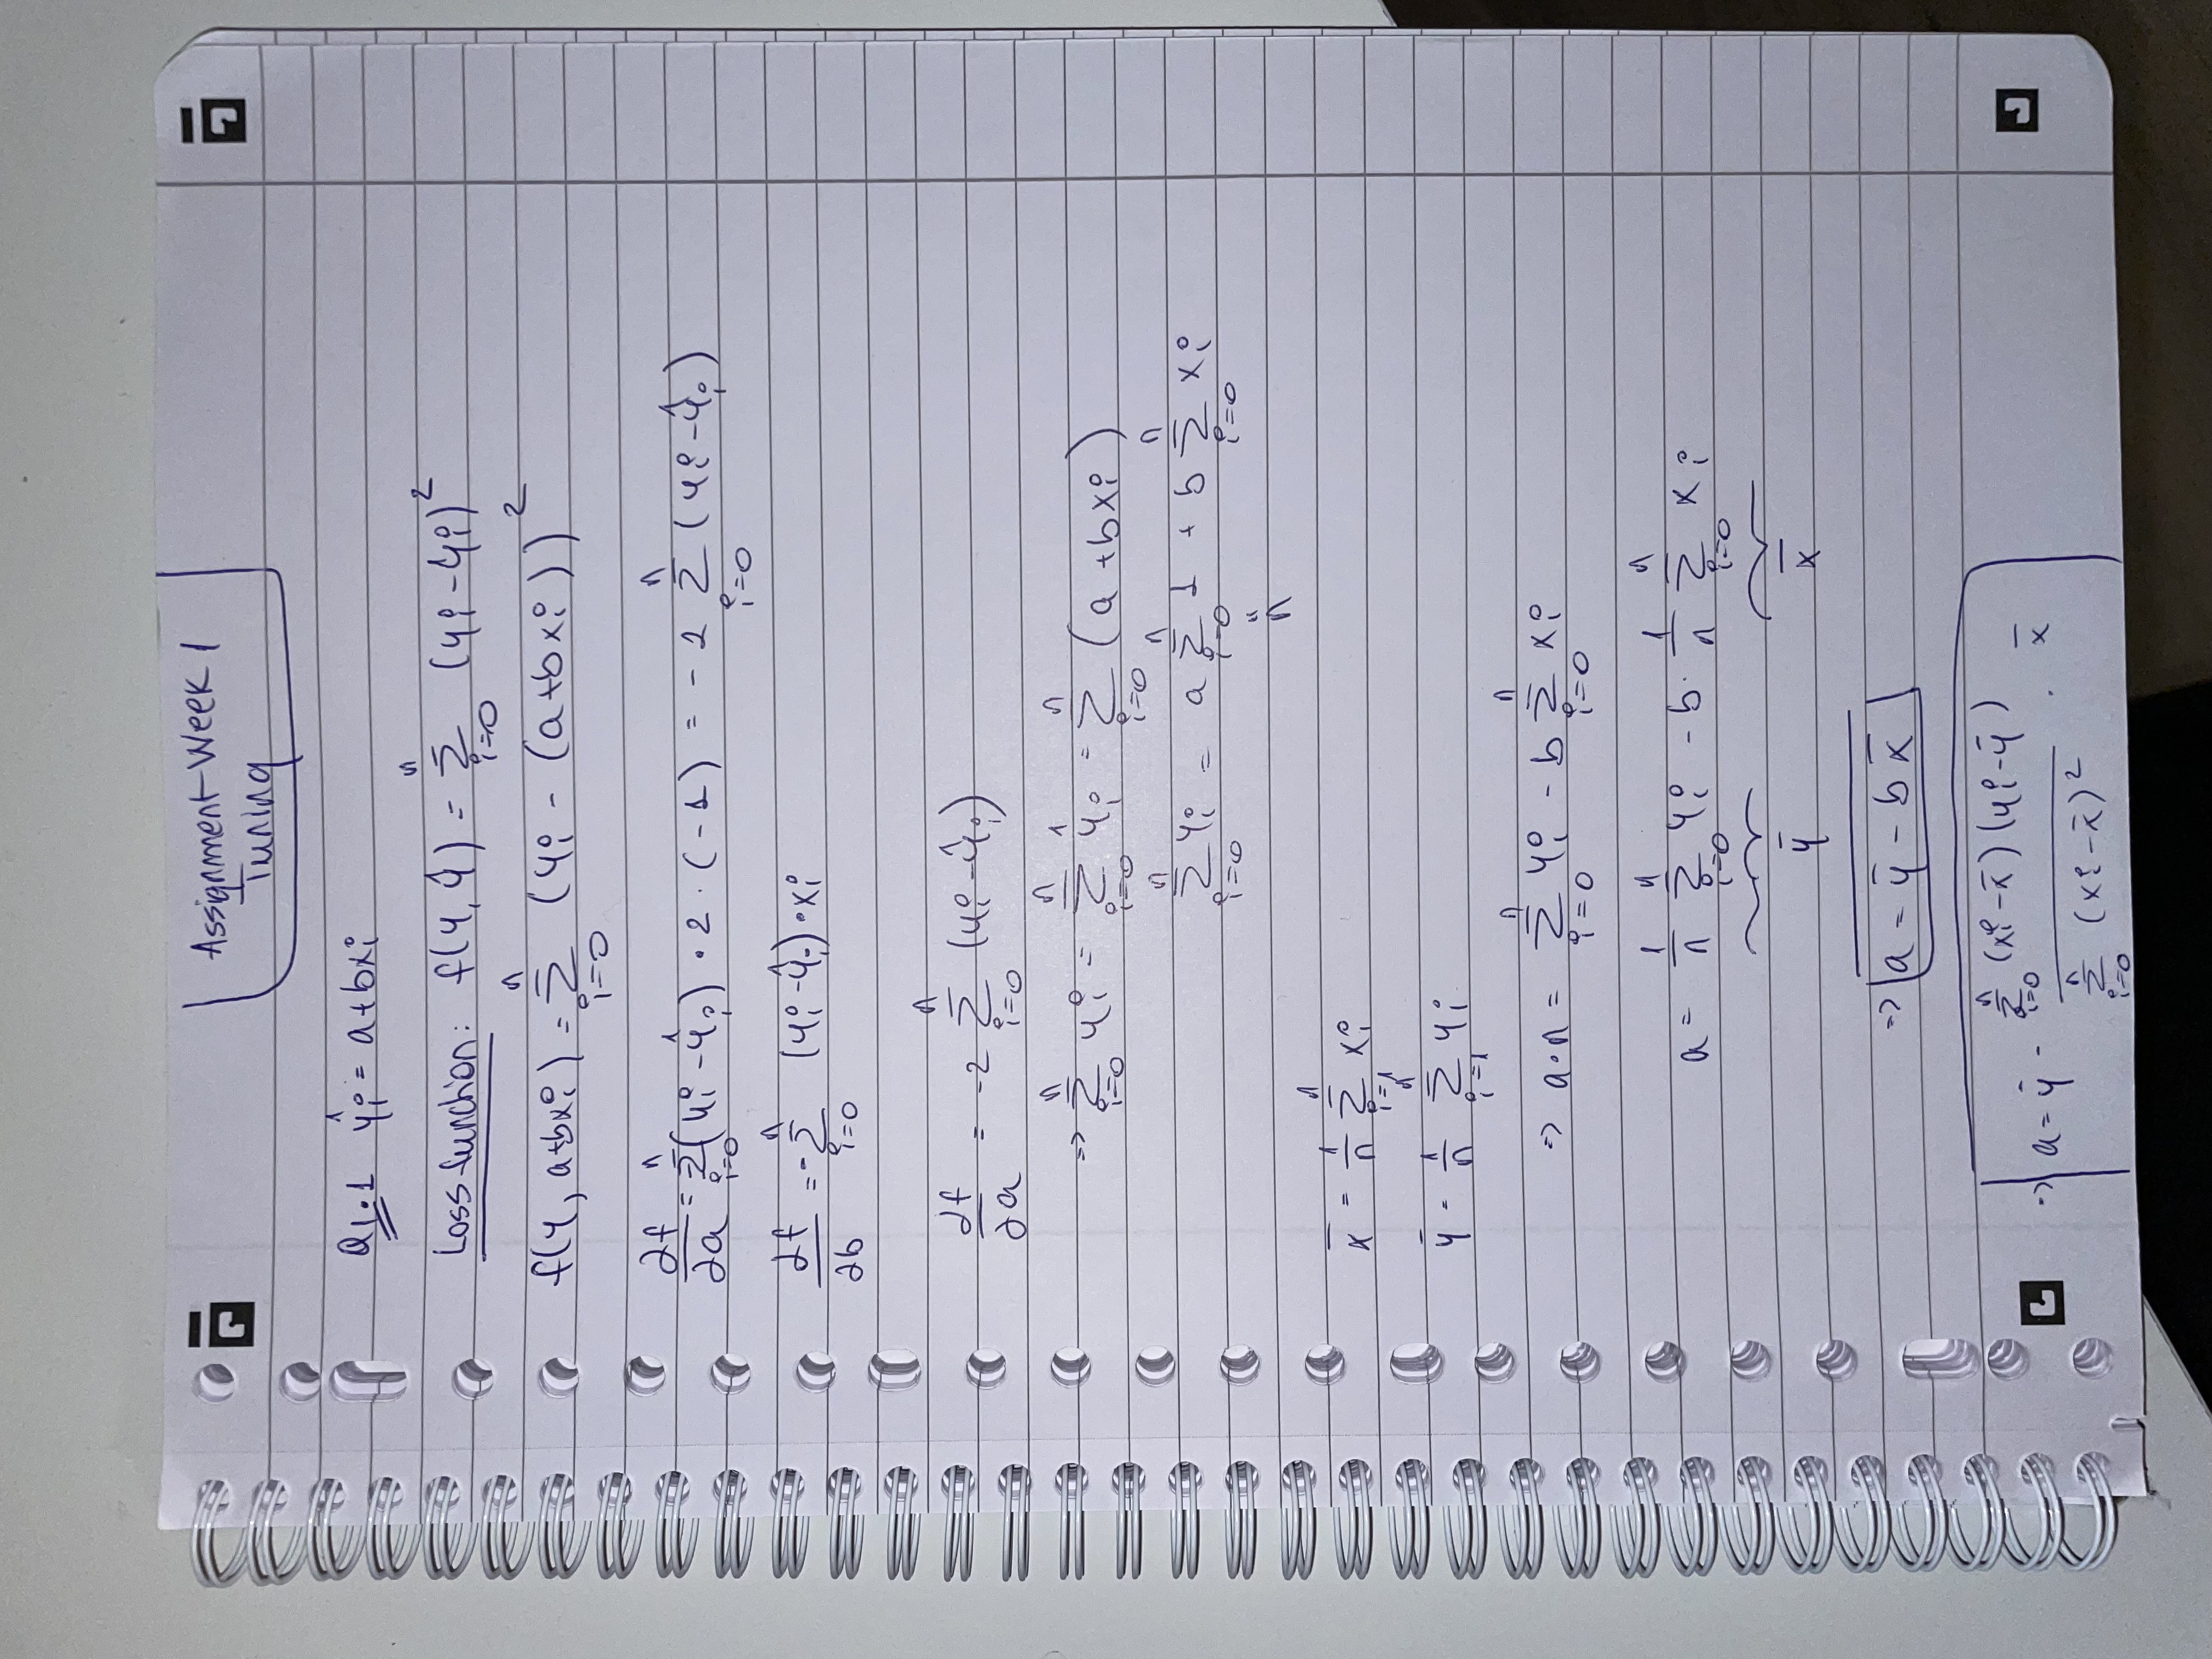 Assignment Week 1
Tuning
Q1.1 ŷᵢ = a + bxᵢ
Loss function: f(y, ŷ) = Σᵢ₌₀ⁿ (yᵢ - ŷᵢ)²
f(y, a+bxᵢ) = Σᵢ₌₀ⁿ (yᵢ - (a+bxᵢ))²
∂f/∂a = Σᵢ₌₀ⁿ (yᵢ - ŷᵢ) · 2 · (-1) = -2 Σᵢ₌₀ⁿ (yᵢ - ŷᵢ)
∂f/∂b = - Σᵢ₌₀ⁿ (yᵢ - ŷᵢ) · xᵢ
∂f/∂a = -2 Σᵢ₌₀ⁿ (yᵢ - ŷᵢ)
=> Σᵢ₌₀ⁿ yᵢ = Σᵢ₌₀ⁿ ŷᵢ = Σᵢ₌₀ⁿ (a + bxᵢ)
Σᵢ₌₀ⁿ yᵢ = a Σᵢ₌₀ⁿ 1 + b Σᵢ₌₀ⁿ xᵢ
" n
x̄ = 1/n Σᵢ₌₁ⁿ xᵢ
ȳ = 1/n Σᵢ₌₁ⁿ yᵢ
=> a·n = Σᵢ₌₀ⁿ yᵢ - b Σᵢ₌₀ⁿ xᵢ
a = 1/n Σᵢ₌₀ⁿ yᵢ - b · 1/n Σᵢ₌₀ⁿ xᵢ
ȳ x̄
=> a = ȳ - b x̄
=> a = ȳ - Σᵢ₌₀ⁿ (xᵢ - x̄)(yᵢ - ȳ) / Σᵢ₌₀ⁿ (xᵢ - x̄)² · x̄